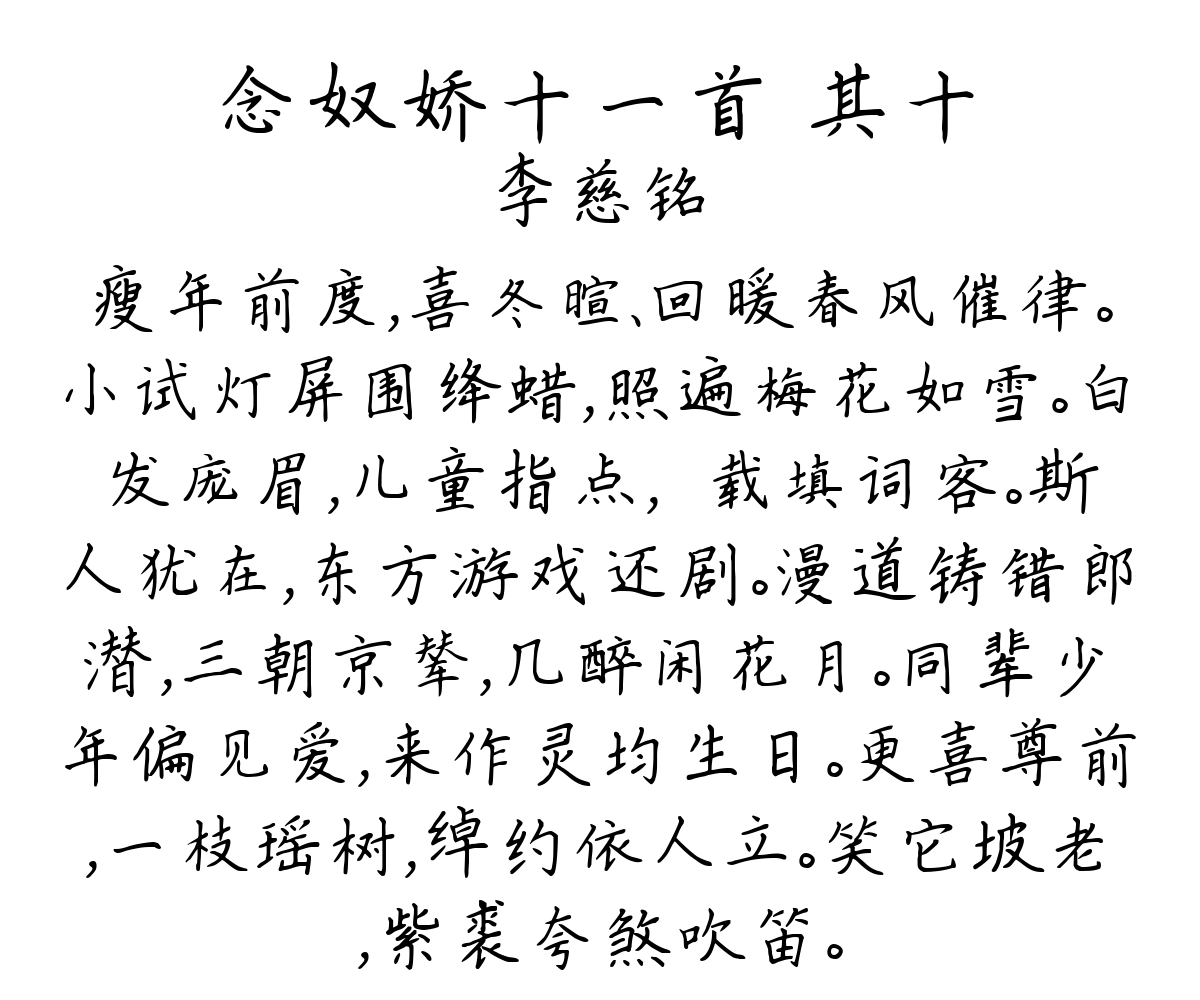 念奴娇十一首 其十
李慈铭
瘦年前度,喜冬暄、回暖春风催律。
小试灯屏围绛蜡,照遍梅花如雪。白
发庞眉,儿童指点, 载填词客。斯
人犹在,东方游戏还剧。漫道铸错郎
潜,三朝京辇,几醉闲花月。同辈少
年偏见爱,来作灵均生日。更喜尊前
,一枝瑶树,绰约依人立。笑它坡老
,紫裘夸煞吹笛。